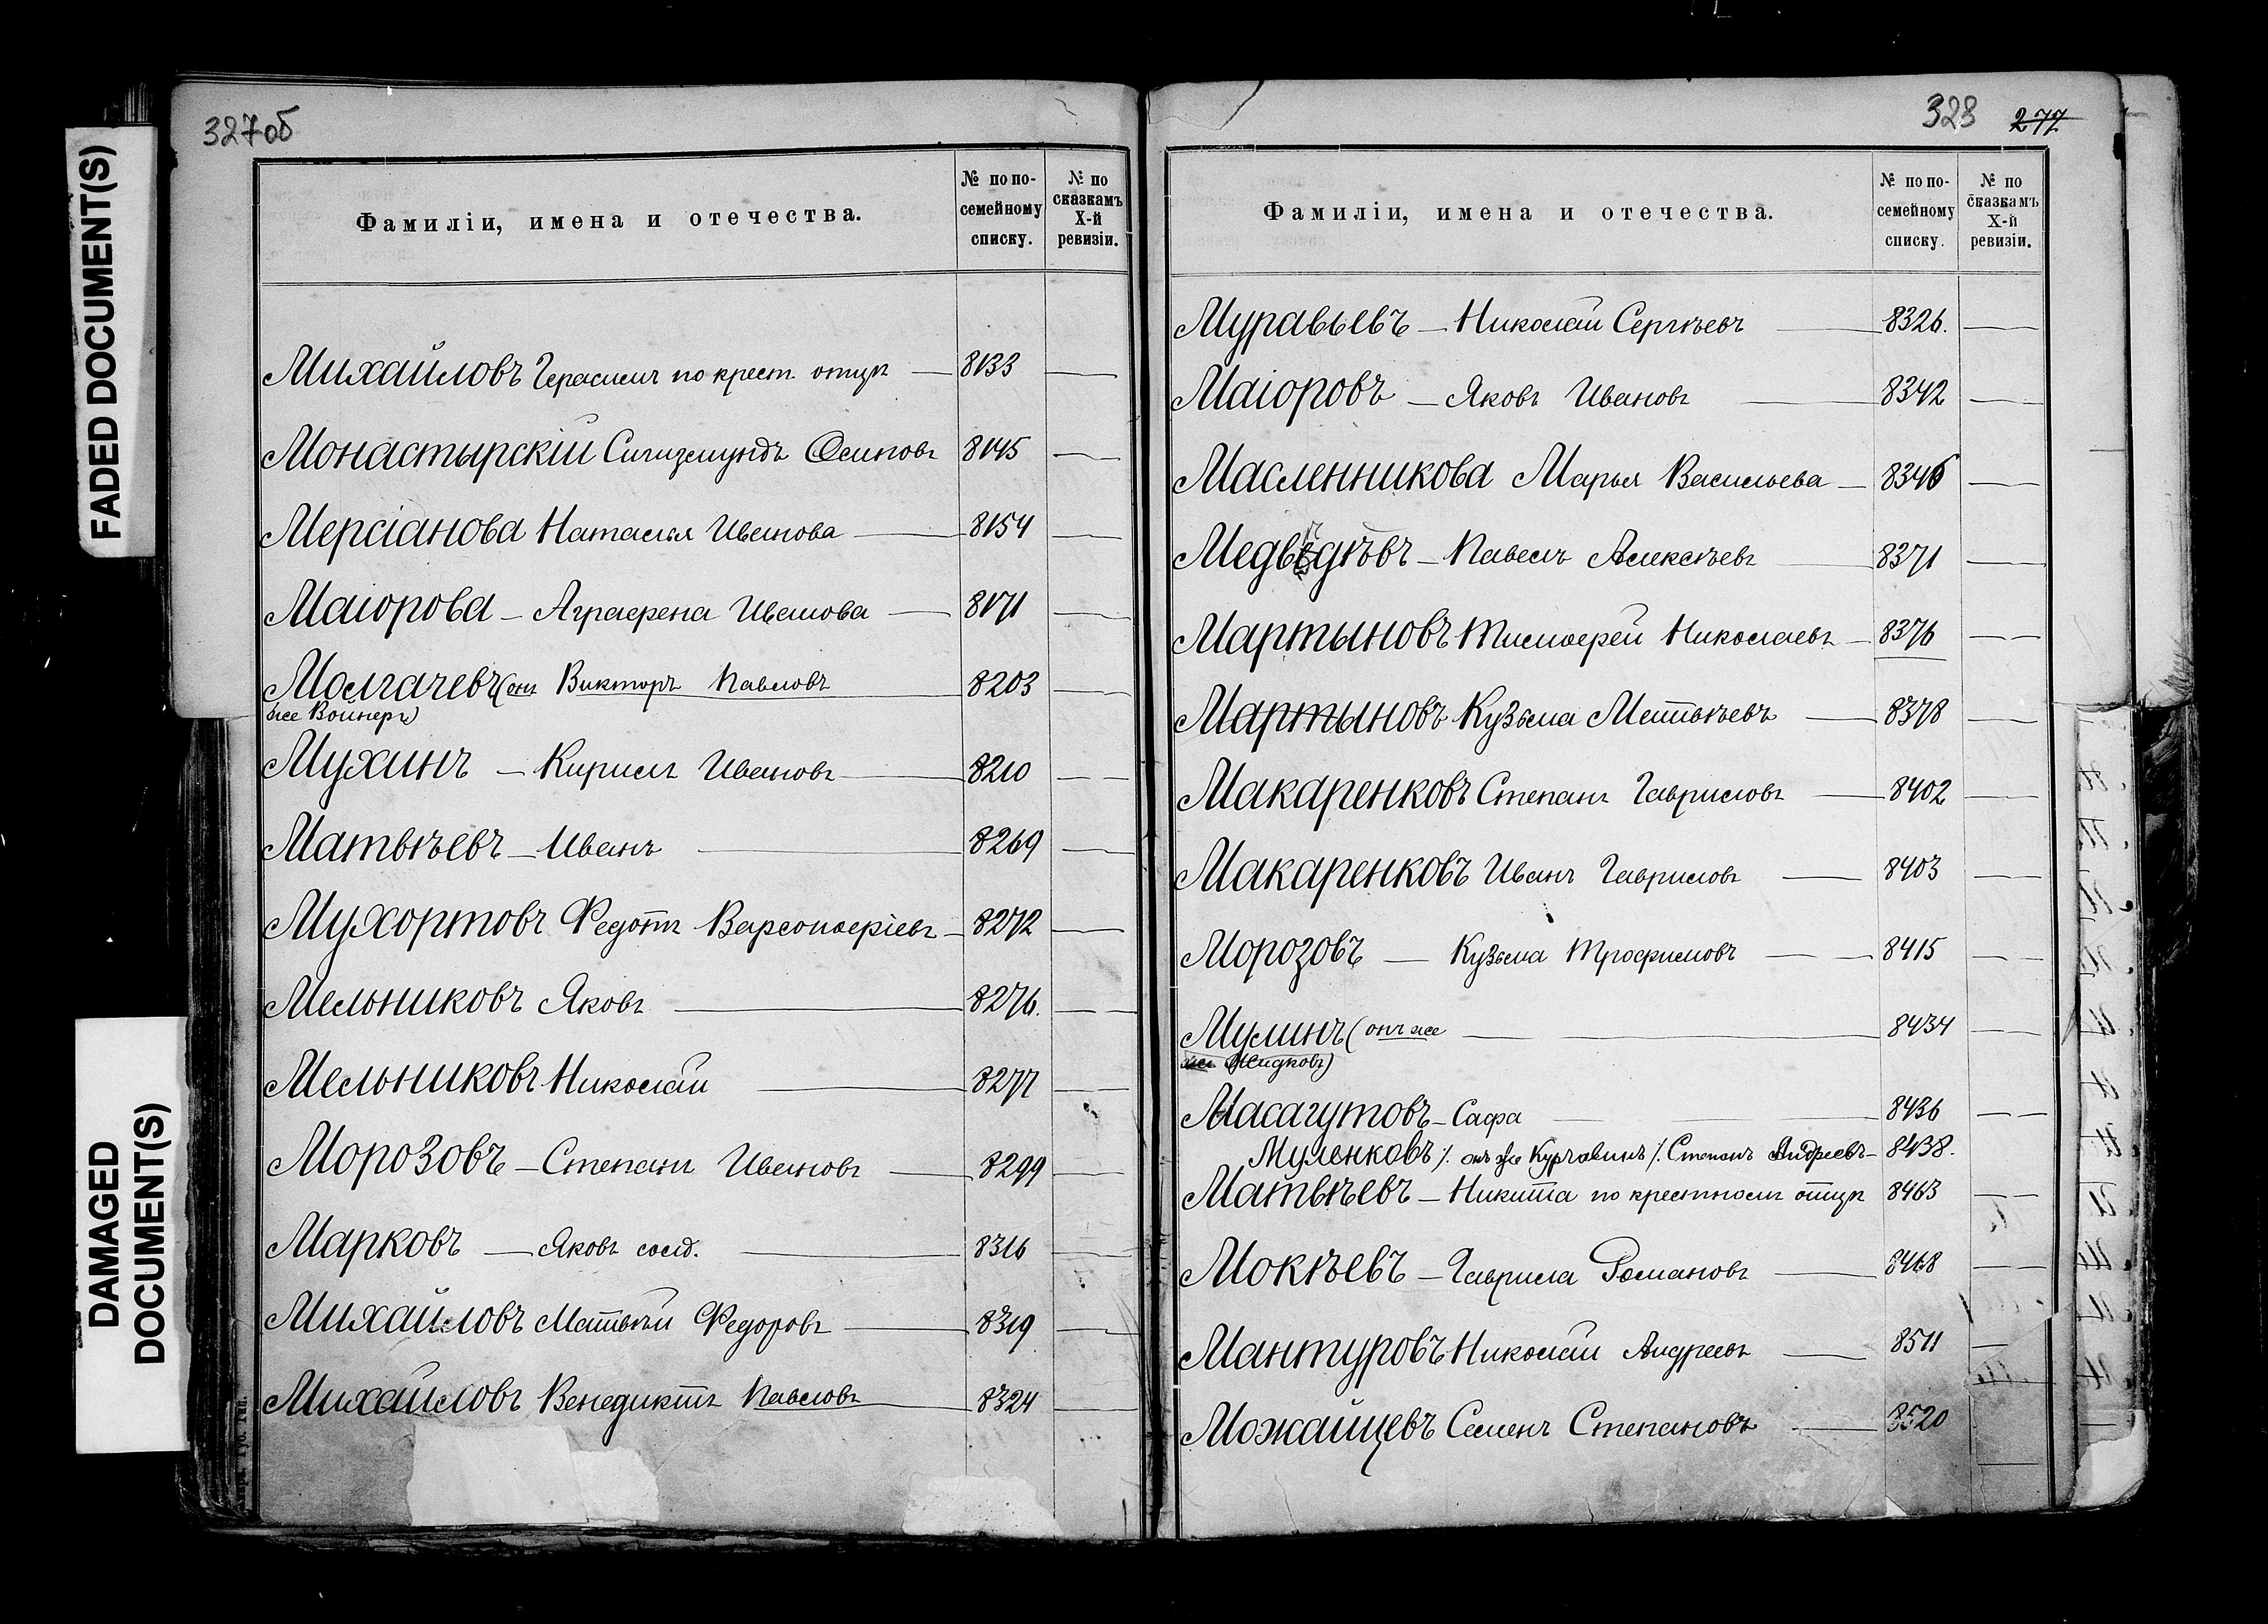 FADED DOCUMENT(S)
DAMAGED
DOCUMENT(S)
327об
Фамиліи, имена и отечества.
№ по по-
семейному
списку.
№ по
сказкамъ
X-й
ревизіи.
Михайловъ Герасимъ по крест. отцу 8133
Монастырскій Сигизмундъ Осиповъ 8145
Мерсіанова Наталья Иванова 8154
Маіорова — Аграфена Иванова 8171
Молгачевъ (онъ Викторъ Павловъ 8203
же Войнеръ)
Мухинъ — Кирилъ Ивановъ 8210
Матвѣевъ — Иванъ 8269
Мухортовъ Федотъ Варсонофіевъ 8272
Мельниковъ Яковъ 8276.
Мельниковъ Николай 8277
Морозовъ — Степанъ Ивановъ 8299
Марковъ — Яковъ солд. 8316
Михайловъ Матвѣй Федоровъ 8319
Михайловъ Венедиктъ Павловъ 8324
328 277
Фамиліи, имена и отечества.
№ по по-
семейному
списку.
№ по
сказкамъ
X-й
ревизіи.
Муравьевъ — Николай Сергѣевъ 8326.
Маіоровъ — Яковъ Ивановъ 8342
Масленникова Марья Васильева 8346
Медвѣдѣвъ — Павелъ Алексѣевъ 8371
Мартыновъ Тимофей Николаевъ 8376
Мартыновъ Кузьма Матвѣевъ 8378
Макаренковъ Степанъ Гавриловъ 8402
Макаренковъ Иванъ Гавриловъ 8403
Морозовъ — Кузьма Трофимовъ 8415
Мулинъ (онъ же 8434
же Жидковъ)
Масагутовъ — Сафа 8436
Муленковъ /. онъ же Курчавинъ /. Степанъ Андреевъ — 8438.
Матвѣевъ — Никита по крестному отцу 8463
Мокѣевъ — Гаврила Романовъ 8468
Мантуровъ Николай Андреевъ 8511
Можайцевъ Семенъ Степановъ 8520